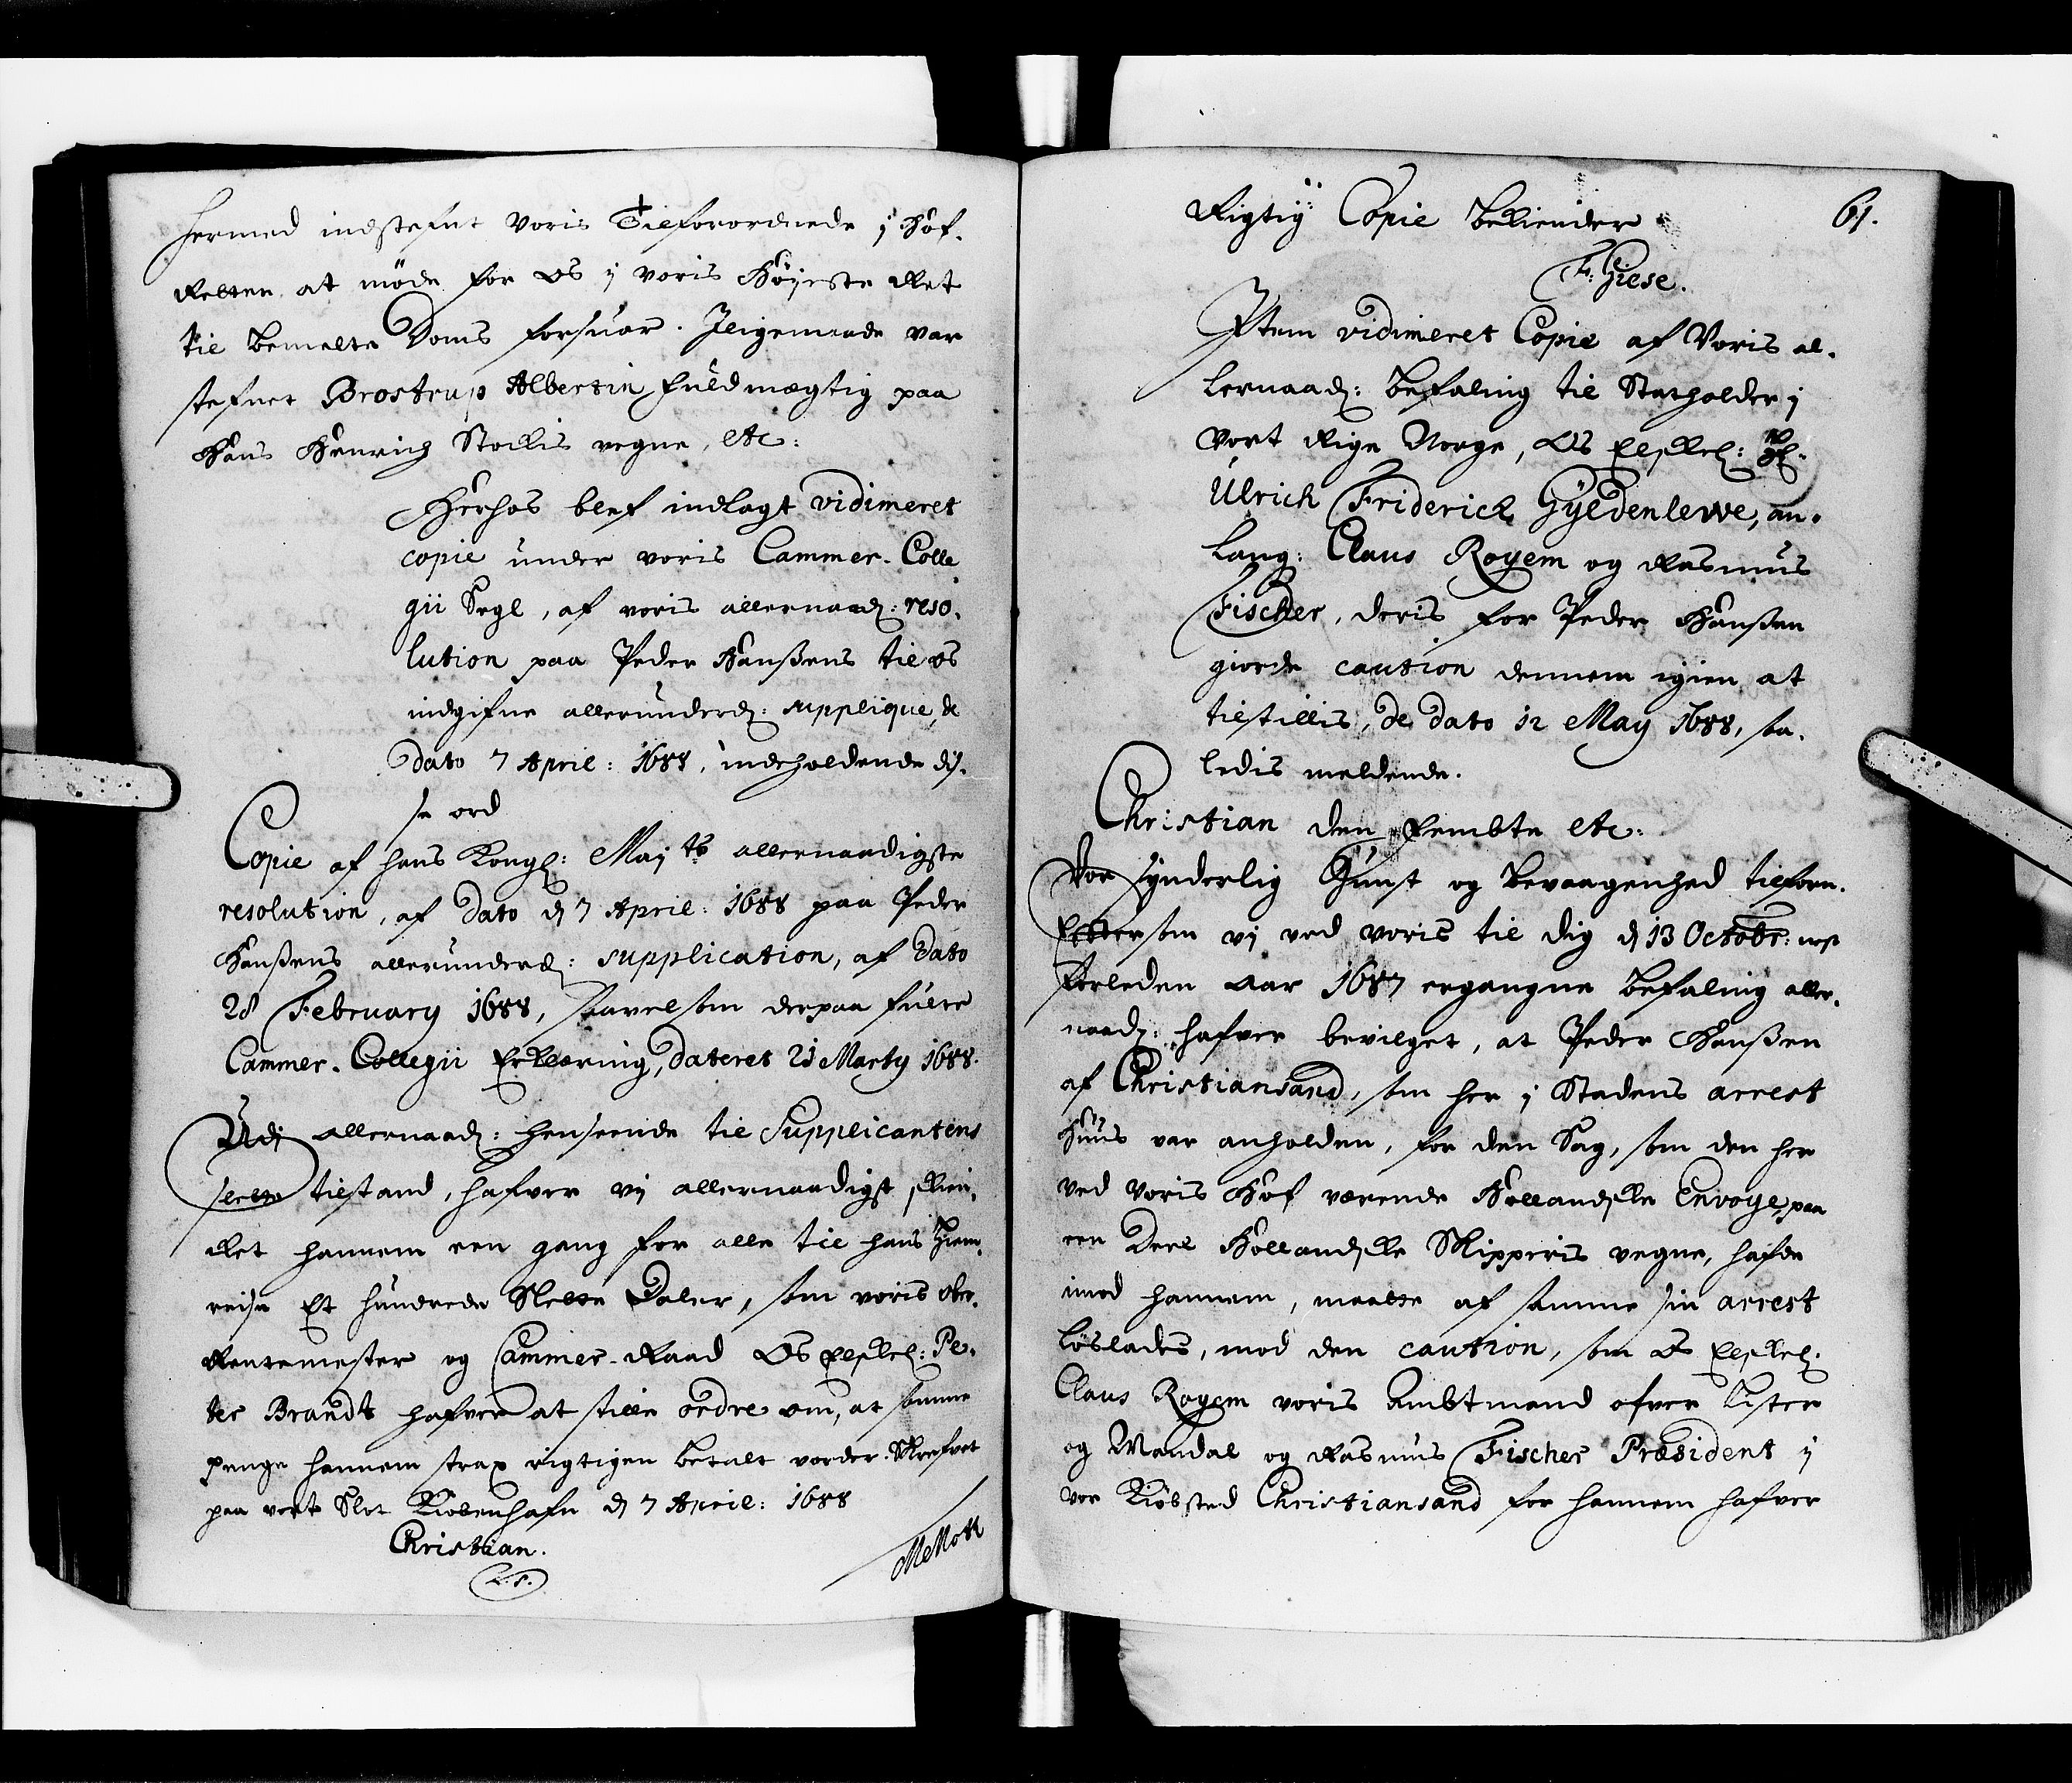 hermed indstefnt voris Tilforordnede j Hof-
Retten at møde for Os ÿ voris Høÿeste Ret
til bemelte Doms forsuar. Jligemaade var
stefnet Brostrup Albertin fuldmægtig paa
Hans Henrich Stockis vegne, etc:
Herhos blef indlagt vidimeret
copie under voris Cammer-Colle
gii Segl, af voris allernaad: reso-
lution paa Peder Hanßens til os
indgifne allerunderd: supplique, de
dato 7 April: 1688, indeholdende dis-
se ord
Copie af hans Kongl: Maj.ts allernaadigste
resolution, af dato d 7 April: 1688 paa Peder
Hanßens allerunderd: supplication, af dato
28 February 1688, saavelsom derpaa fulte
Cammer-Collegii Erklæring, dateret 21 Marty 1688.
Udj allernaad: henseende til Supplicantens
slette tilstand, hafver vij allernaadigst skien-
cket hannem een gang for alle til hans Hiem-
reise Et hundrede Slette Daler, som voris Ober-
Rentemester og Cammer-Raad Os Elskel: Pe-
ter Brandt hafver at stille ordre om, at samme
penge hannem strax rigtigen betalt vorder. Skrefvet
paa vort Slot Kiøbenhafn d 7 April: 1688
Christian.
L.S.
MMoth
Rigtig Copie bekiender
61.
F: Giese.
Item vidimeret Copie af Voris al-
lernaad: befaling til Statholder j
Vort Rige Norge, Os Elskel: H:
Ulrich Friderich Gÿldenlewe, an-
lang: Claus Royem og Rasmus
Fischer, deris for Peder Hanßen
giorde caution dennem igien at
tilstillis, de dato 12 May 1688, saa-
ledis meldende.
Christian den Fembte etc:
Vor synderlig Gunst og bevaagenhed tilforn.
Eftersom vj ved voris til dig d 13 Octobr: nest
forleden Aar 1687 ergangne befaling aller-
naad: hafver bevilget, at Peder Hanßen
af Christiansand, som her j Stadens arrest
Huus var anholden, for den Sag, som den her
ved Voris Hof værende Hollandske Envoye, paa
een Deel Hollandske Skipperis vegne, hafde
imod hannem, maatte af samme sin arrest
løslades, mod den caution, som Os Elskel:
Claus Royem voris Ambtmand ofver Lister
og Mandal og Rasmus Fischer Præsident ÿ
vor Kiøbsted Christiansand for hannem hafver